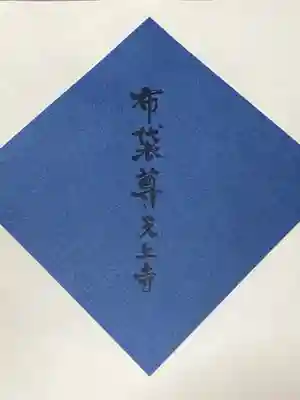 布袋尊天上寺